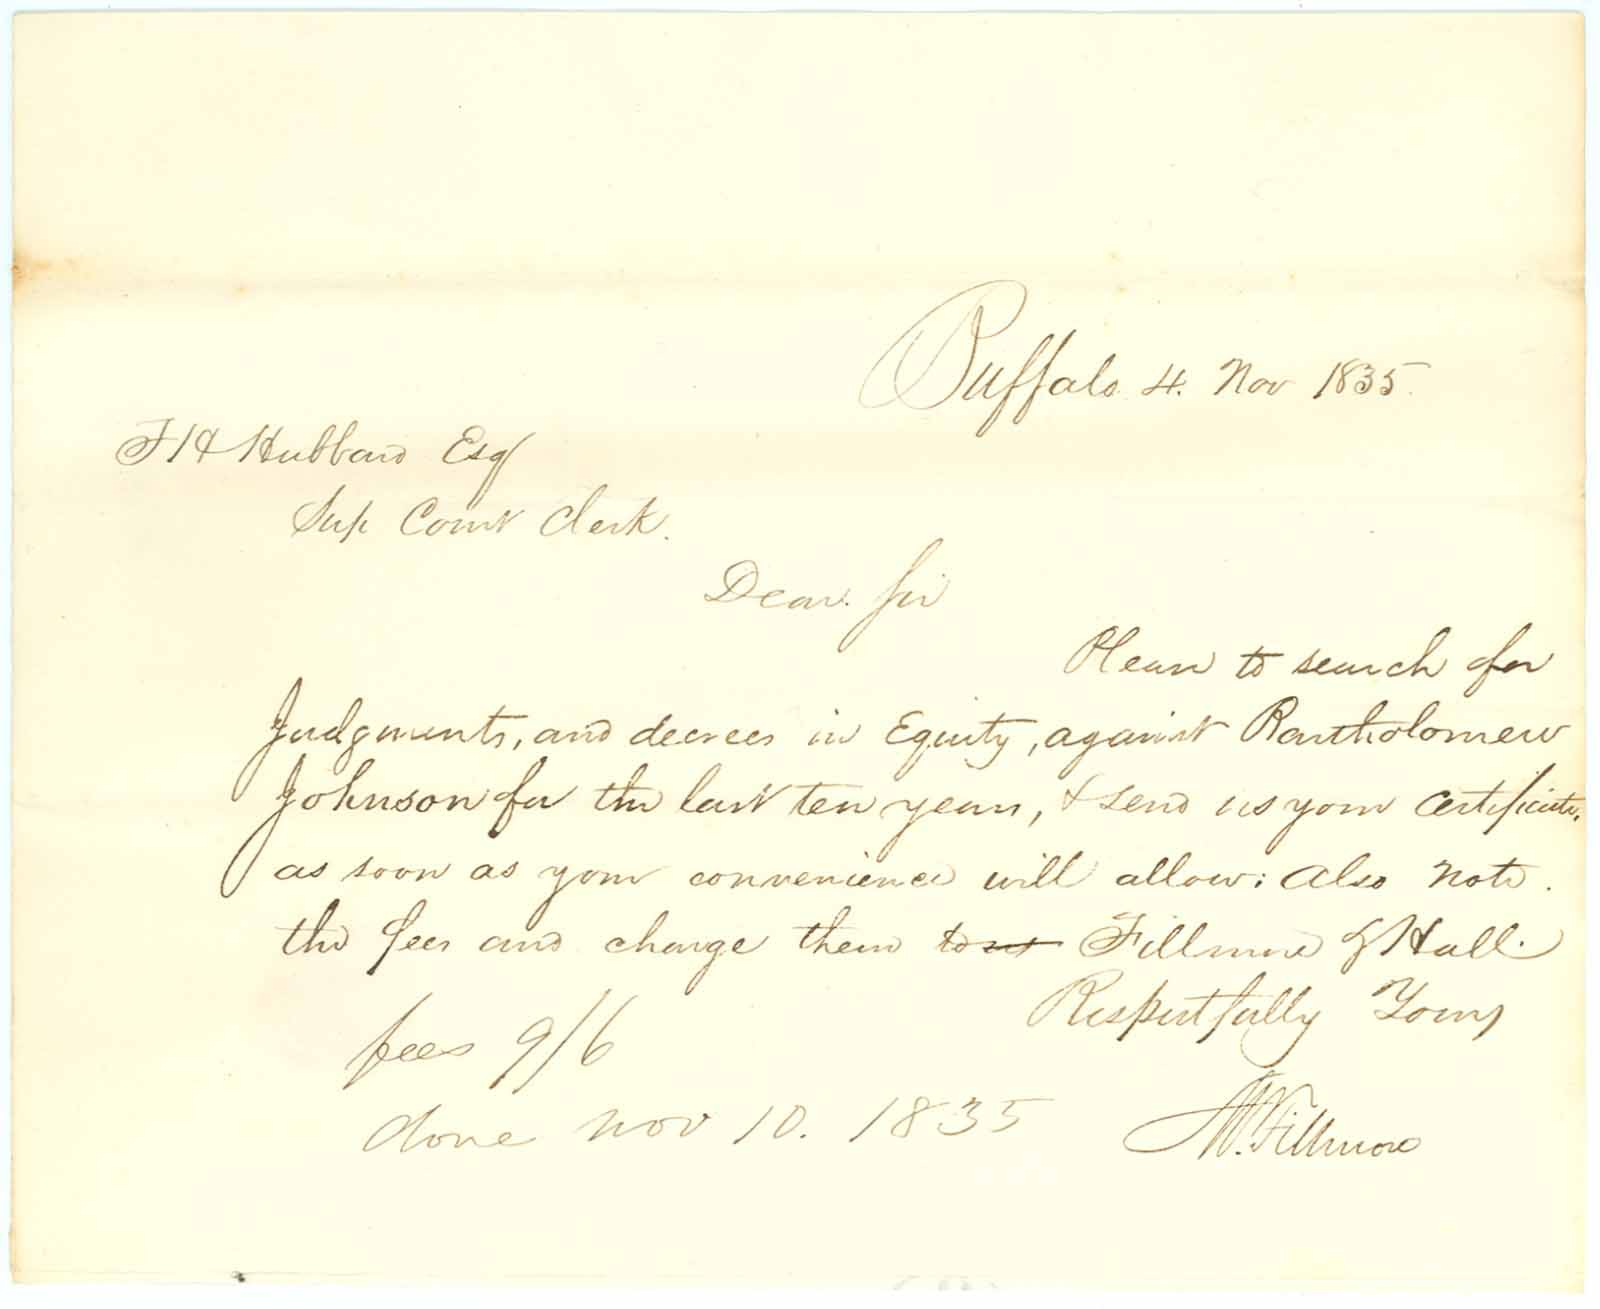 Buffalo 4. Nov 1835.
F H Hubbard Esq
Sup Court Clerk.
Dear. Sir
Please to search for
Judgments, and decrees in Equity, against Bartholomew
Johnson for the last ten years, & send us your certificate,
as soon as your convenience will allow; Also note.
the fees and charge them to us Fillmore & Hall.
Respectfully Yours
fees 9/6
M. Fillmore
done nov 10. 1835